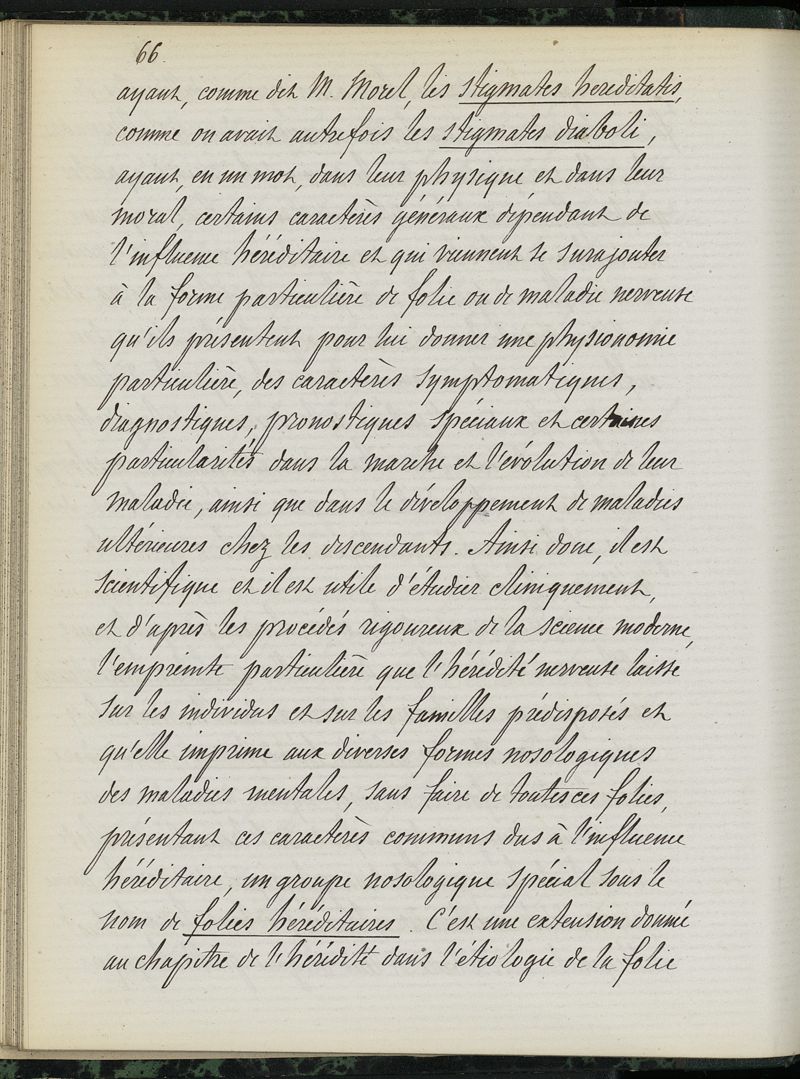 66.
ayant, comme dit M. Morel, les stigmates hereditatis,
comme on avait autrefois les stigmates diaboli,
ayant, en un mot, dans leur physique et dans leur
moral, certains caractères généraux dépendant de
l'influence héréditaire et qui viennent se surajouter
à la forme particulière de folie ou de maladie nerveuse
qu'ils présentent pour lui donner une physionomie
particulière, des caractères symptomatiques,
diagnostiques, pronostiques spéciaux et certaines
particularités dans la marche et l'évolution de leur
maladie, ainsi que dans le développement de maladies
ultérieures chez les descendants. Ainsi donc, il est
scientifique et il est utile d'étudier cliniquement,
et d'après les procédés rigoureux de la science moderne,
l'empreinte particulière que l'hérédité nerveuse laisse
sur les individus et sur les familles prédisposés et
qu'elle imprime aux diverses formes nosologiques
des maladies mentales, sans faire de toutes ces folies,
présentant ces caractères communs dus à l'influence
héréditaire, un groupe nosologique spécial sous le
nom de folies héréditaires. C'est une extension donnée
au chapitre de l'hérédité dans l'étiologie de la folie